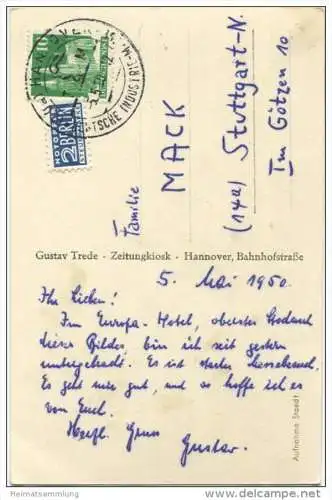 HANNOVER
DEUTSCHE INDUSTRIE-M
10
NOTOPFER
2 BERLIN
STEUERMARKE
Familie
MACK
(14a) Stuttgart-N.
Im Götzen 10
Gustav Trede - Zeitungkiosk - Hannover, Bahnhofstraße
5. Mai 1950.
Ihr Lieben!
Im Europa-Hotel, oberster Stock
dieses Bildes, bin ich seit gestern
untergebracht. Es ist starker
Es geht mir gut, und so hoffe ich es
von Euch.
Herzl. Gruss
Gustav.
Aufnahme Staedt
Heimatsammlung
delcampe.net